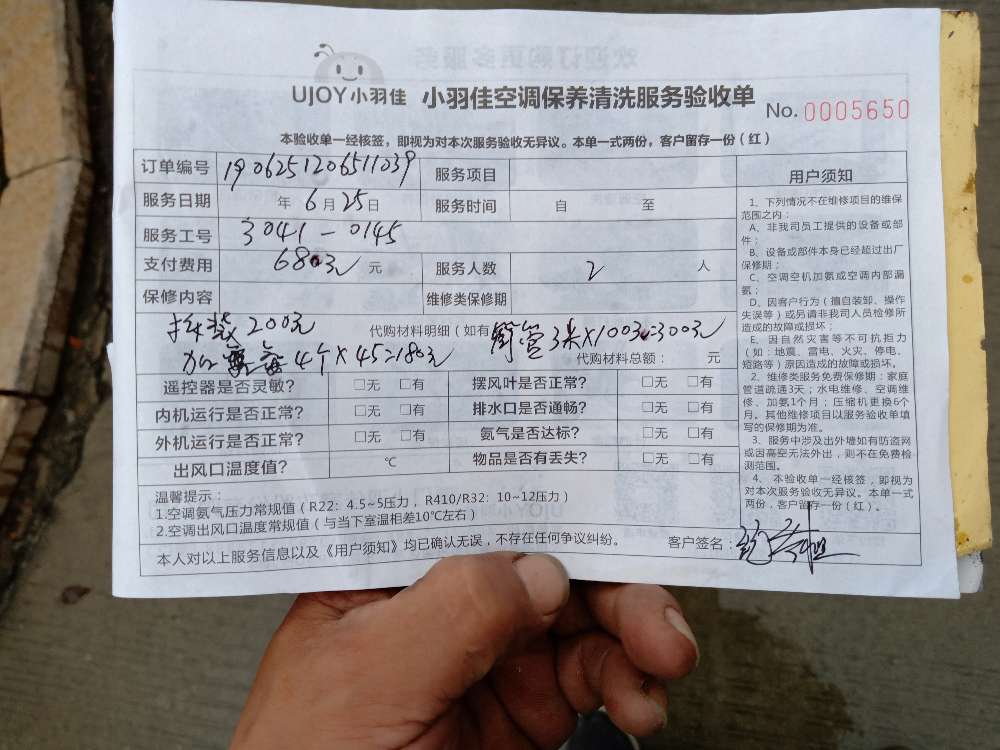 UJOY小羽佳 小羽佳空调保养清洗服务验收单 No. 0005650
本验收单一经核签，即视为对本次服务验收无异议。本单一式两份，客户留存一份（红）
订单编号 1906251206511039 服务项目
服务日期 年 6月25日 服务时间 自 至
服务工号 3041-0145
支付费用 680元 元 服务人数 2 人
保修内容 维修类保修期
拆装200元 代购材料明细（如有 铜管3米X100元=300元
加 4个X45=180元 代购材料总额： 元
遥控器是否灵敏? □无 □有 摆风叶是否正常? □无 □有
内机运行是否正常? □无 □有 排水口是否通畅? □无 □有
外机运行是否正常? □无 □有 氨气是否达标? □无 □有
出风口温度值? ℃ 物品是否有丢失? □无 □有
温馨提示：
1.空调氨气压力常规值（R22: 4.5~5压力，R410/R32: 10~12压力）
2.空调出风口温度常规值（与当下室温相差10℃左右）
本人对以上服务信息以及《用户须知》均已确认无误，不存在任何争议纠纷。 客户签名：
用户须知
1、下列情况不在维修项目的维保
范围之内：
A、非我司员工提供的设备或部
件；
B、设备或部件本身已经超过出厂
保修期；
C、空调空机加氨或空调内部漏
氨；
D、因客户行为（擅自装卸、操作
失误等）或另请非我司人员检修所
造成的故障或损坏；
E、因自然灾害等不可抗拒力
（如：地震、雷电、火灾、停电、
短路等）原因造成的故障或损坏。
2、维修类服务免费保修期：家庭
管道疏通3天；水电维修、空调维
修、加氨1个月；压缩机更换6个
月。其他维修项目以服务验收单填
写的保修期为准。
3、服务中涉及出外墙如有防盗网
或因高空无法外出，则不在免费检
测范围。
4、本验收单一经核签，即视为
对本次服务验收无异议。本单一式
两份，客户留存一份（红）。